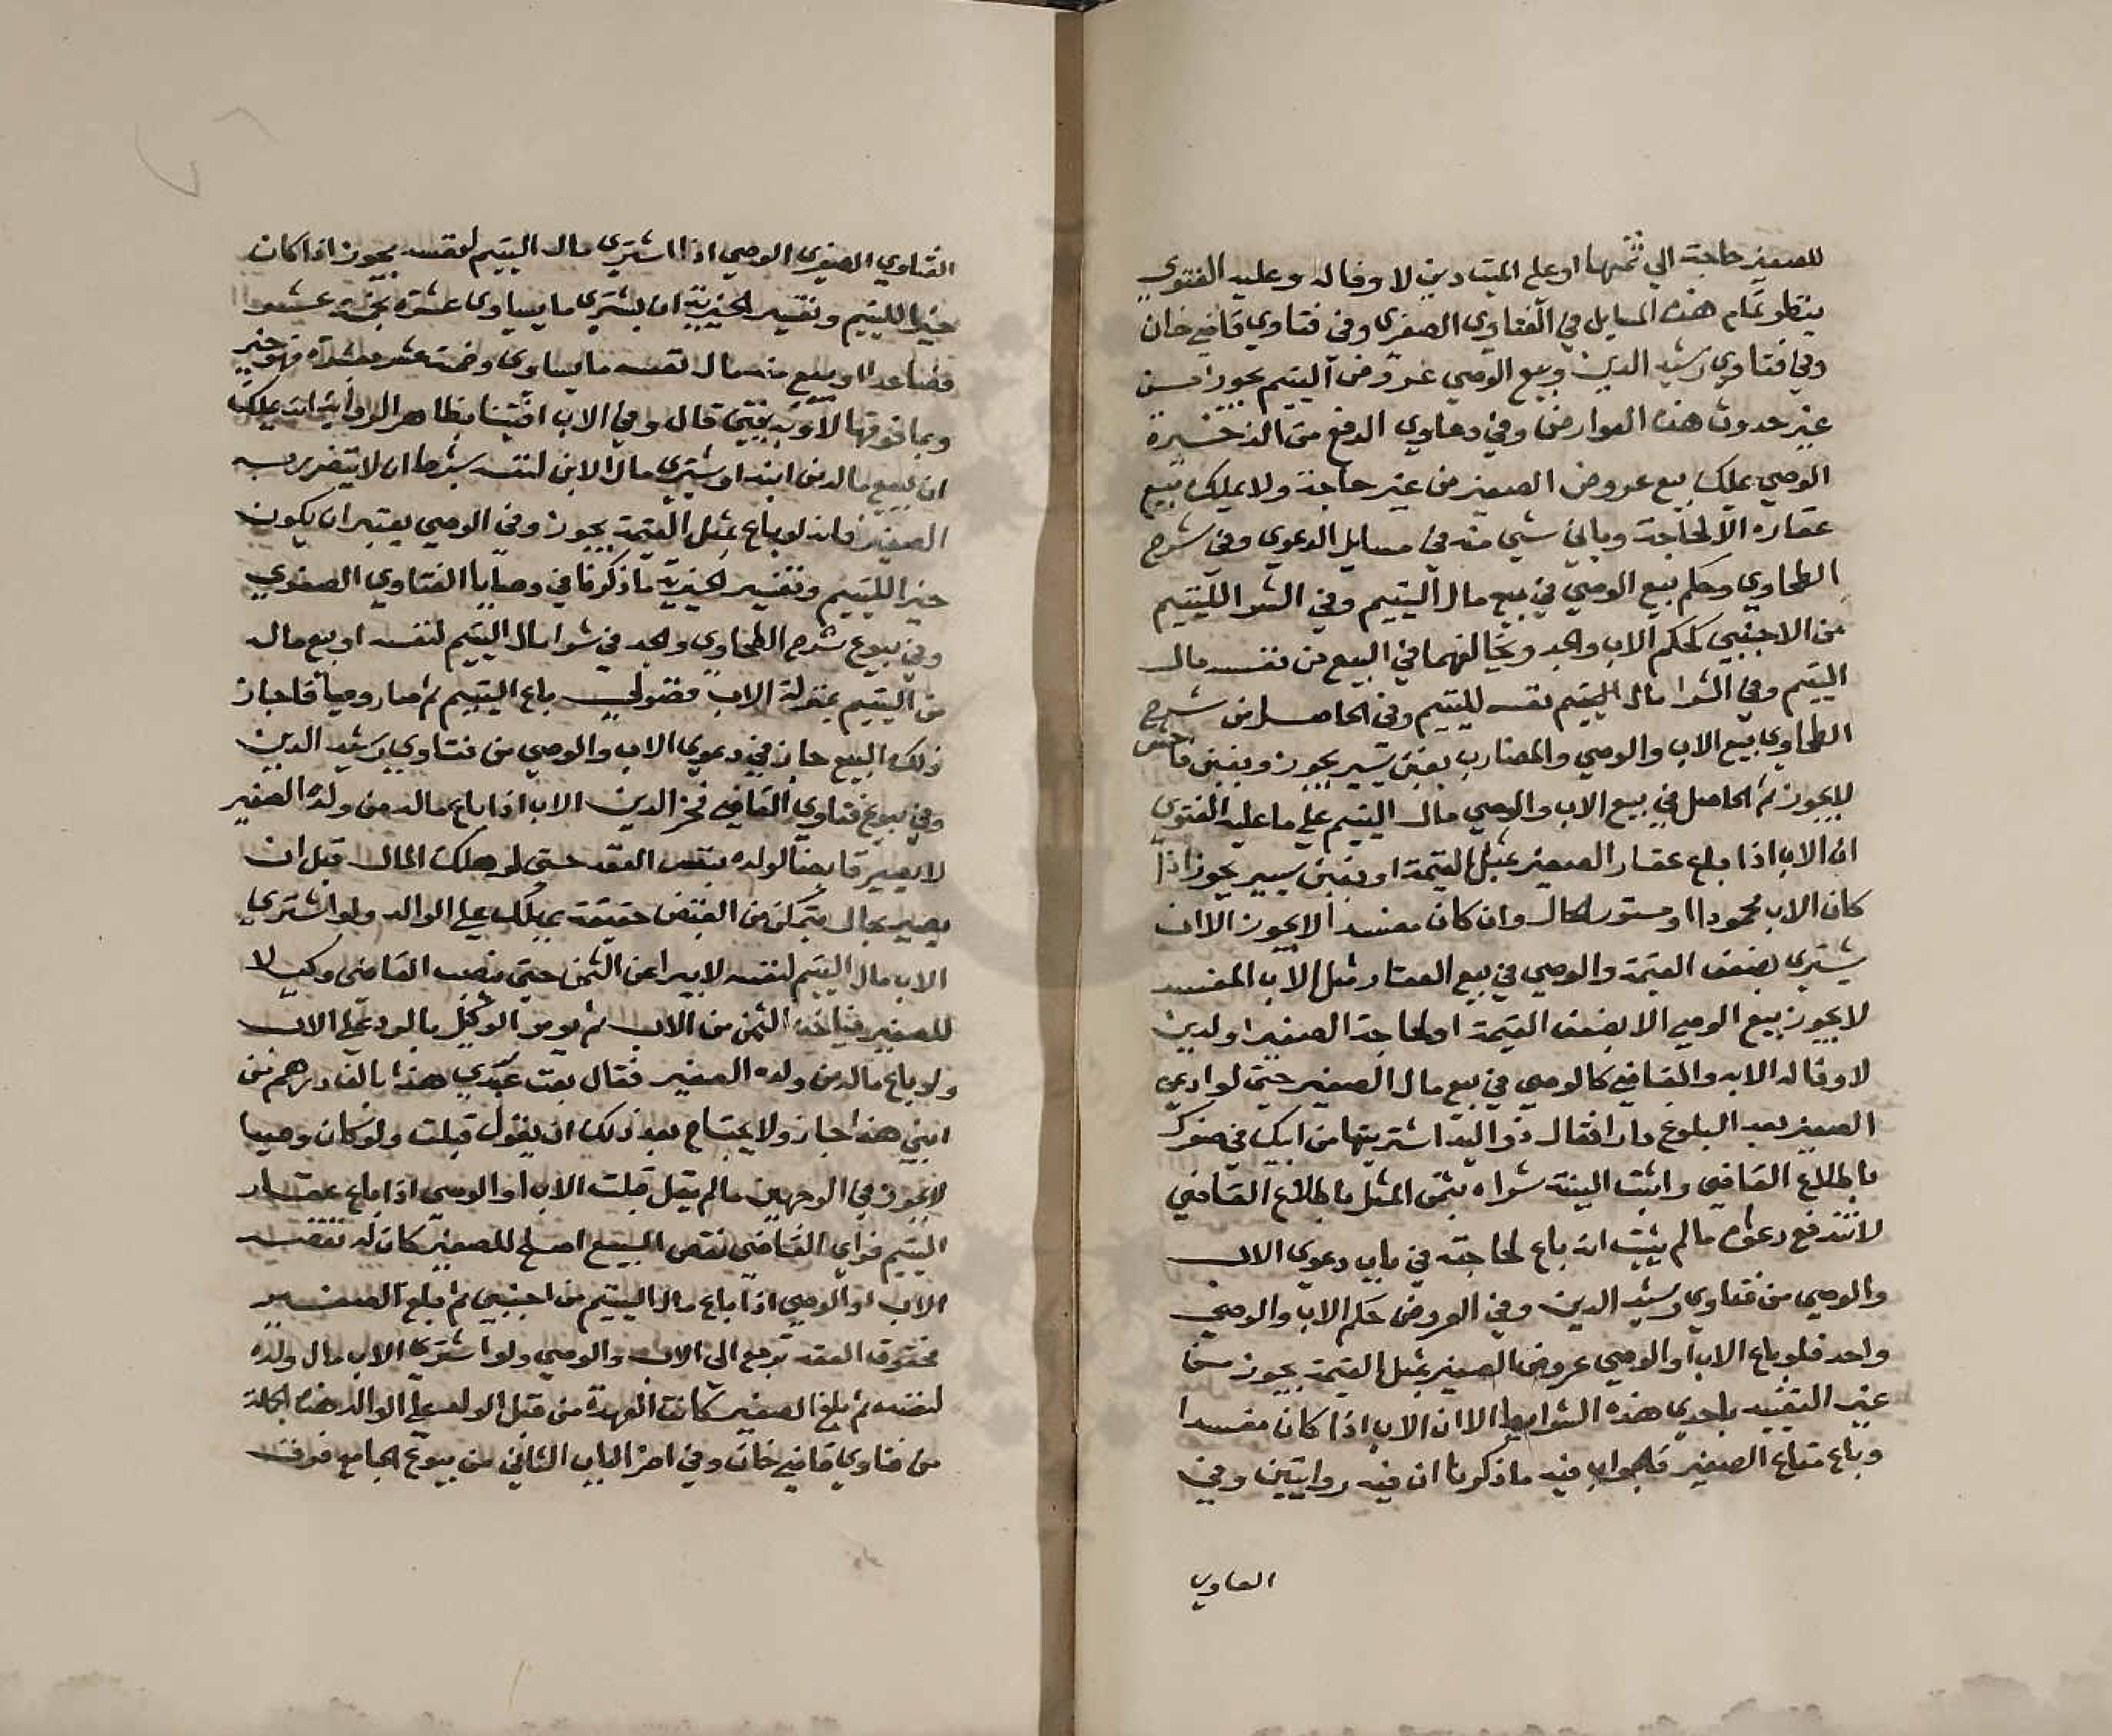 للصغير حاجة الي ثمنها او علي الميت دين لا وفا له وعليه الفتوي
ينظر تمام هذه المسايل في الفتاوي الصغري وفي فتاوي قاضي خان
وفي فتاوي رشيد الدين وبيع الوصي عروض اليتيم يجوز من
غير حدوث هذه العوارض وفي دعاوي الدفع من الذخيرة
الوصي يملك بيع عروض الصغير من غير حاجة ولا يملك بيع
عقاره الا لحاجة وياتي شي منه في مسايل الدعوي وفي شرح
الطحاوي وحكم بيع الوصي في بيع مال اليتيم وفي الشرا لليتيم
من الاجنبي كحكم الاب والجد ويخالفهما في البيع من نفسه مال
اليتيم وفي الشرا مال اليتيم نفسه لليتيم وفي الحاصل من شرح
الطحاوي بيع الاب والوصي والمضارب بغبن يسير يجوز وبغبن فاحش
لا يجوز ثم الحاصل في بيع الاب والوصي مال اليتيم علي ما عليه الفتوي
ان الاب اذا باع عقار الصغير بمثل القيمة او بغبن يسير يجوز اذا
كان الاب محمودا او مستور الحال وان كان مفسدا لا يجوز الا ان
يشتري بضعف القيمة والوصي في بيع العقار مثل الاب المفسد
لا يجوز بيع الوصي الا بضعف القيمة او لحاجة الصغير او لدين
لا وفا له الا به والقاضي كالوصي في بيع مال الصغير حتي لو ادعي
الصغير بعد البلوغ دارا فقال ذو اليد اشتريتها من ابيك في صغرك
باطلاع القاضي واثبت البينة شراه بثمن المثل باطلاع القاضي
لا تندفع دعواه ما لم يثبت انه باع لحاجته في باب دعوي الاب
والوصي من فتاوي رشيد الدين وفي العروض حكم الاب والوصي
واحد فلو باع الاب او الوصي عروض الصغير بمثل القيمة يجوز من
غير التقييد باحدي هذه الشرايط الا ان الاب اذا كان مفسدا
وباع متاع الصغير فالجواب فيه ما ذكرنا ان فيه روايتين وفي
الفتاوي
الفتاوي الصغري الوصي اذا اشتري مال اليتيم لنفسه يجوز اذا كان
خيرا لليتيم وتفسير الخيرية ان يشتري ما يساوي عشرة بخمسة عشر
فصاعدا او يبيع منه مال نفسه ما يساوي خمسة عشر بعشرة فهو خير
وبما فوقها لا وبه يفتي قال وفي الاب افتينا بظاهر الرواية انه يملك
ان يبيع ماله من ابنه او يشتري مال الابن لنفسه بشرط ان لا يتضرر به
الصغير فانه لو باع بمثل القيمة يجوز وفي الوصي يعتبر ان يكون
خيرا لليتيم وتفسير الخيرية ما ذكرنا في وصايا الفتاوي الصغري
وفي بيوع شرح الطحاوي والجد في شرا مال اليتيم لنفسه او بيع ماله
من اليتيم بمنزلة الاب فضولي باع اليتيم ثم صار وصيا فاجاز
ذلك البيع جاز في دعوي الاب والوصي من فتاوي رشيد الدين
وفي بيوع فتاوي القاضي فخر الدين الاب اذا باع ماله من ولده الصغير
لا يصير قابضا لولده بنفس العقد حتي لو هلك المال قبل ان
يصير بحال يتمكن من القبض حقيقة يهلك علي الوالد ولو اشتري
الاب مال اليتيم لنفسه لا يبرا عن الثمن حتي ينصب القاضي وكيلا
للصغير فياخذ الثمن من الاب ثم يومر الوكيل بالرد علي الاب
ولو باع ماله من ولده الصغير فقال بعت عبدي هذا بالف درهم من
ابني هذا جاز ولا يحتاج بعد ذلك ان يقول قبلت ولو كان وصيا
لا يجوز في الوجهين ما لم يقل قبلت الاب او الوصي اذا باع عقار
اليتيم فراي القاضي نقض البيع اصلح للصغير كان له نقضه
الاب او الوصي اذا باع مال اليتيم من اجنبي ثم بلغ الصغير
فحقوق العقد ترجع الي الاب والوصي ولو اشتري الاب مال ولده
لنفسه ثم بلغ الصغير كانت العهدة من قبل الولد علي الوالد هذه الجملة
من فتاوي قاضي خان وفي اخر الباب الثاني من بيوع الجامع فوقف